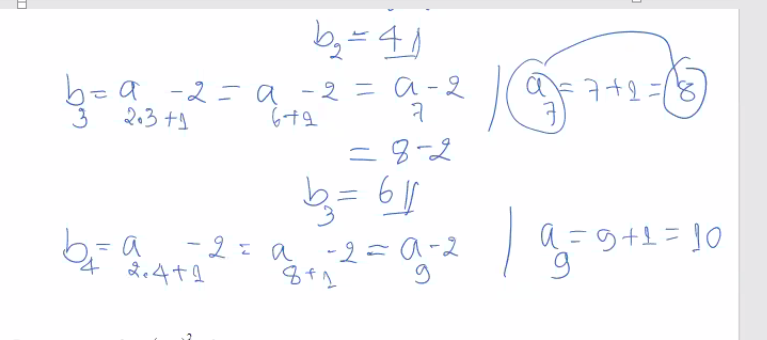 b₂ = 4
b₃ = a₂.₃₊₁ - 2 = a₆₊₁ - 2 = a₇ - 2 | a₇ = 7+1 = 8
= 8-2
b₃ = 6
b₄ = a₂.₄₊₁ - 2 = a₈₊₁ - 2 = a₉ - 2 | a₉ = 9+1 = 10